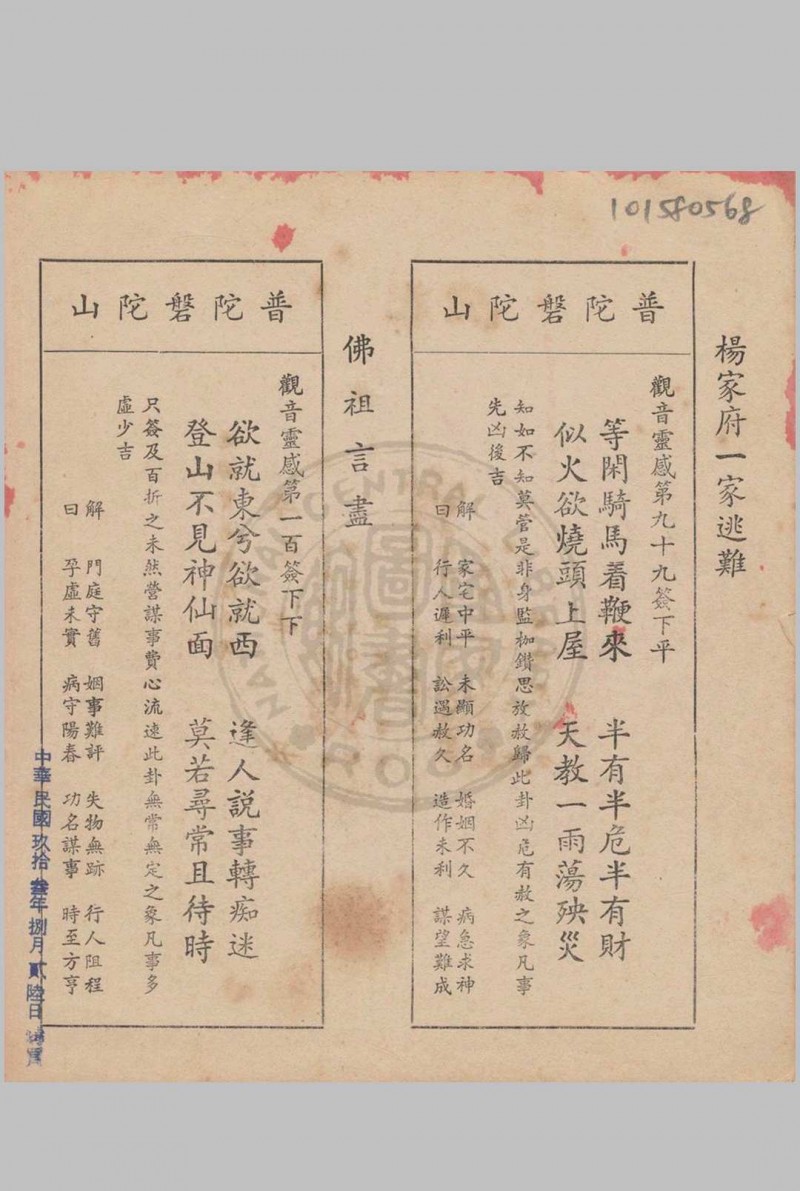 101580568
楊家府一家逃難
普陀磐陀山
觀音靈感第九十九簽下平
等閑騎馬着鞭來　半有半危半有財
似火欲燒頭上屋　天教一雨蕩殃災
知如不知莫管是非身監枷鎖思放赦歸此卦凶危有赦之象凡事
先凶後吉
解　家宅中平　未顯功名　婚姻不久　病急求神
曰　行人遲利　訟遇赦久　造作未利　謀望難成
佛祖言盡
普陀磐陀山
觀音靈感第一百簽下下
欲就東兮欲就西　逢人説事轉痴迷
登山不見神仙面　莫若尋常且待時
只簽及百折之未然營謀事費心流速此卦無常無定之象凡事多
虛少吉
解　門庭守舊　姻事難評　失物無跡　行人阻程
曰　孕虛未實　病守陽春　功名謀事　時至方亨
中華民國玖拾叁年捌月貳陸日
NATIONAL CENTRAL LIBRARY
ROC